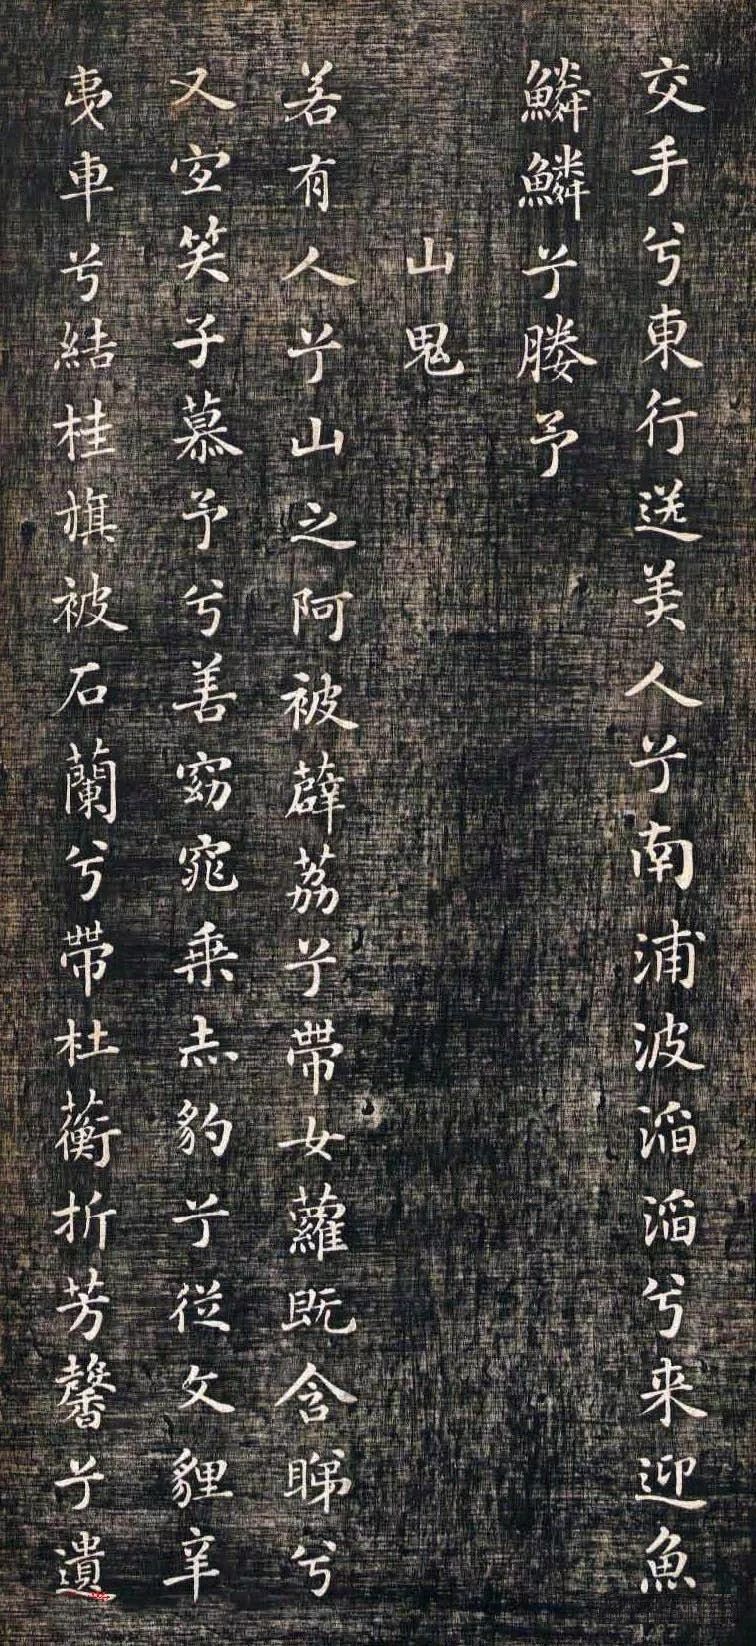 交手兮東行送美人兮南浦波滔滔兮来迎魚
鱗鱗兮媵予
山鬼
若有人兮山之阿被薜荔兮帶女蘿既含睇兮
又宜笑子慕予兮善窈窕乗赤豹兮從文貍辛
夷車兮結桂旗被石蘭兮帶杜蘅折芳馨兮遺